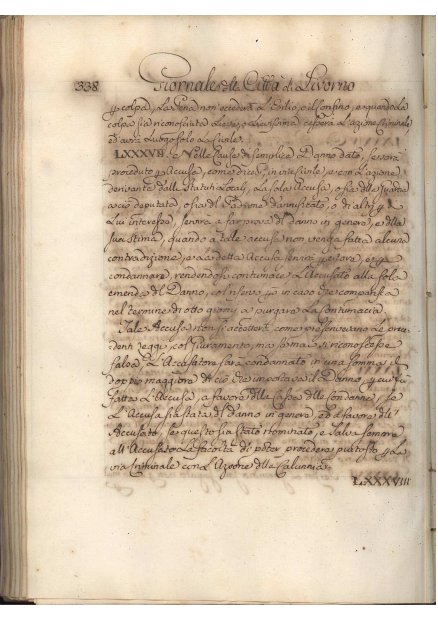 338 Giornale della Città di Livorno
p colpa, la Pena non eccederà l'Esilio, o il Confino, e quando la
colpa sia riconosciuta Lieve, o Levissima cesserà l'azione Criminale
ed avrà Luogo solo la Civile.
LXXXVII. Nelle Cause di semplice Danno dato, se sarà
proceduto p Accusa, come dicesi, in via Civile, o con l'azione
derivante dalle Statuti Locali, la sola Accusa, o sia della Guardia
a ciò deputata o sia del Padrone dannificato, o di altri p
Lui interesse, servirà a far prova del danno in genere, e della
sua stima, quando a tale accusa non venga fatta alcuna
contradizione, e la detta Accusa servirà p
condannare, rendendosi contumace l'Accusato alla sola
emenda del Danno, col riservo p in caso che comparisca
nel termine di otto giorni a purgare la Contumacia
Tale Accusa non si accetterà come prescrivevano le prece=
denti leggi, col Giuramento, ma prima si riconoscesse
falsa, l'Accusatore sarà condannato in una somma il
doppio maggiore di ciò che importava il Danno, p cui fu
fatta l'Accusa, a favore della Cassa delle Condanne, se
l'Accusa sia stata di danno in genere, ed a favore dell'
Accusato, se questo sia stato nominato, e salva sempre
all'Accusato la facoltà di poter procedere piuttosto p la
via Criminale con l'Azione della Calunnia.
LXXXVIII